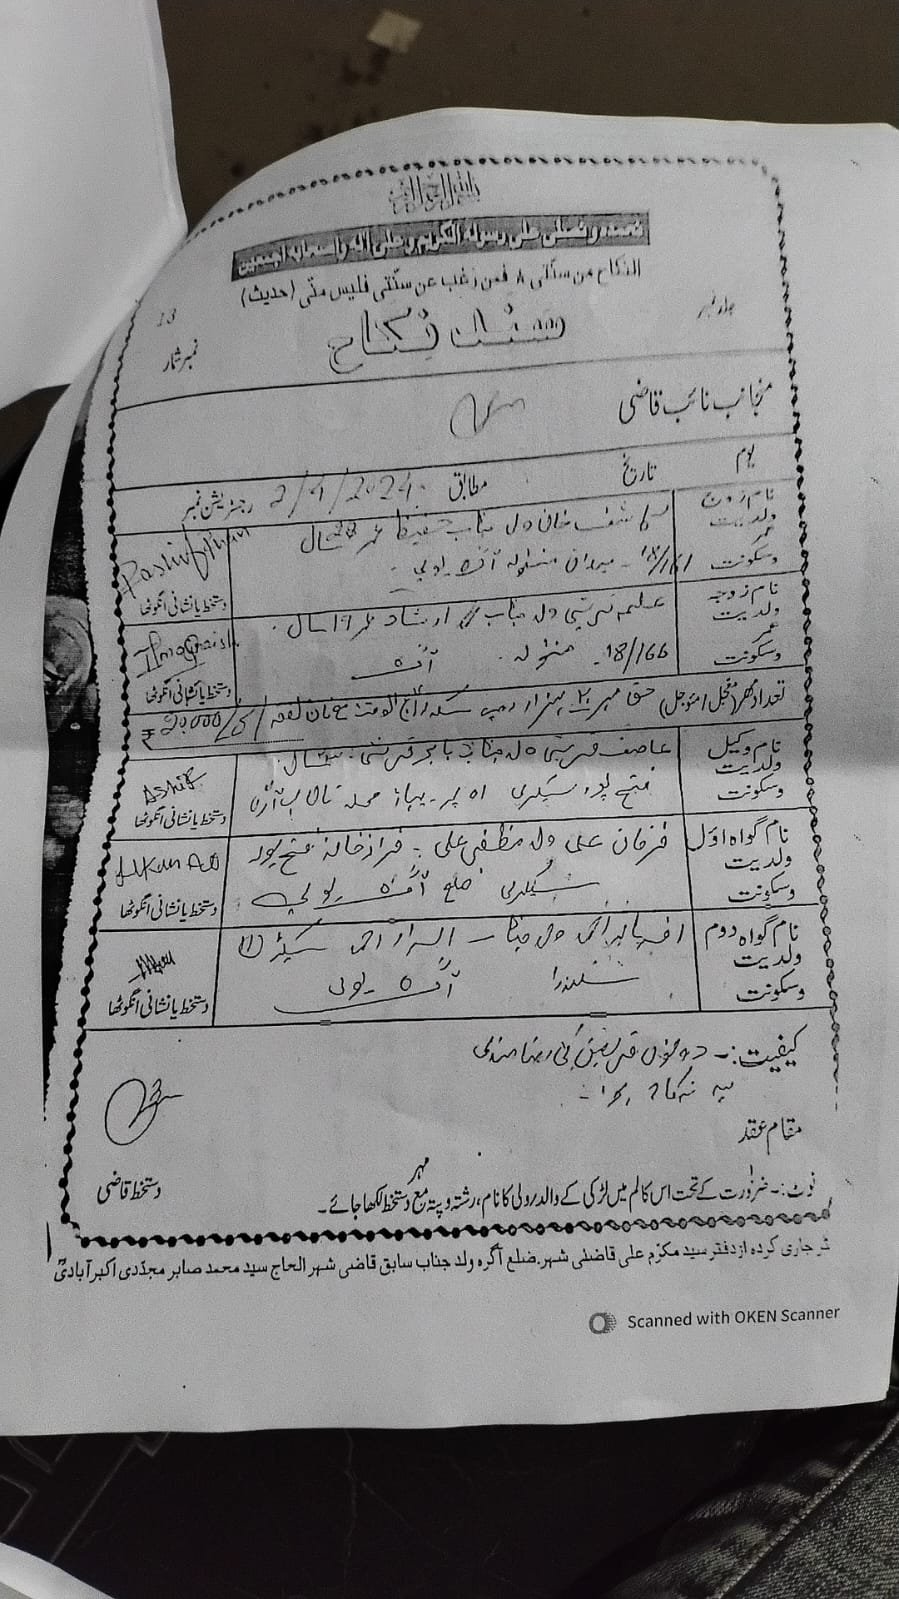 بسم الله الرحمن الرحيم
نحمده و نصلى على رسوله الكريم و على اله واصحابه اجمعين
النكاح من سنّتى ۸ فمن رغب عن سنّتى فليس منّى (حديث)
جلد نمبر
13
سند نکاح
نمبر شمار
منجانب نائب قاضی
یوم
تاریخ
مطابق 2/4/2024
رجسٹریشن نمبر
نام زوج
ولدیت
عمر
وسکونت
خان ولد جناب حفیظ عمر سال
18/161 - میدان منٹولہ آگرہ یوپی -
Kashif Khan
دستخط یا نشانی انگوٹھا
نام زوجہ
ولدیت
عمر
وسکونت
قریشی ولد جناب ارشاد عمر ۱۹ سال
18/166 - منٹولہ آگرہ
Ilma Qureishi
دستخط یا نشانی انگوٹھا
تعداد مهر (معجل / موجل) حق مہر ۲۰ ہزار روپیہ سکہ رائج الوقت نان نفقہ
₹ 20,000/5/
نام وکیل
ولدیت
وسکونت
عاصف قریشی ولد جناب بابر قریشی سال
فتح پور سیکری محلہ تالاب آگرہ
Ashif
دستخط یا نشانی انگوٹھا
نام گواہ اوّل
ولدیت
وسکونت
فرقان علی ولد مظفر علی - فتح پور
سیکری ضلع آگرہ یوپی
دستخط یا نشانی انگوٹھا
نام گواہ دوم
ولدیت
وسکونت
احمد ولد جناب اسرار احمد سیکٹر
سکندرا آگرہ یوپی
دستخط یا نشانی انگوٹھا
کیفیت :- دونوں فریقین کی رضا مندی
یہ نکاح ہوا -
مقام عقد
دستخط قاضی
مہر
نوٹ :- ضرورت کے تحت اس کالم میں لڑکی کے والد رولی کا نام، رشتہ و پتہ مع دستخط لکھا جائے ۔
جاری کرده از دفتر سید مکرّم علی قاضئی شہر. ضلع آگرہ ولد جناب سابق قاضی شہر الحاج سید محمد صابر مجدّدی اکبرآبادیؒ
Scanned with OKEN Scanner